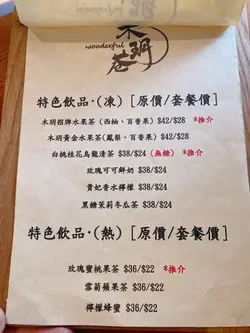 木玥
wooderful
巷
特色飲品·(凍) [原價/套餐價]
木玥招牌水果茶(西柚、百香果) $42/$28 *推介
木玥黃金水果茶(鳳梨、百香果) $42/$28
白桃桂花烏龍清茶 $38/$24 (無糖) *推介
玫瑰可可鮮奶 $38/$24
貴妃香水檸檬 $38/$24
黑糖茉莉冬瓜茶 $38/$24
特色飲品·(熱) [原價/套餐價]
玫瑰蜜桃果茶 $36/$22 *推介
雪菊蘋果茶 $36/$22
檸檬蜂蜜 $36/$22